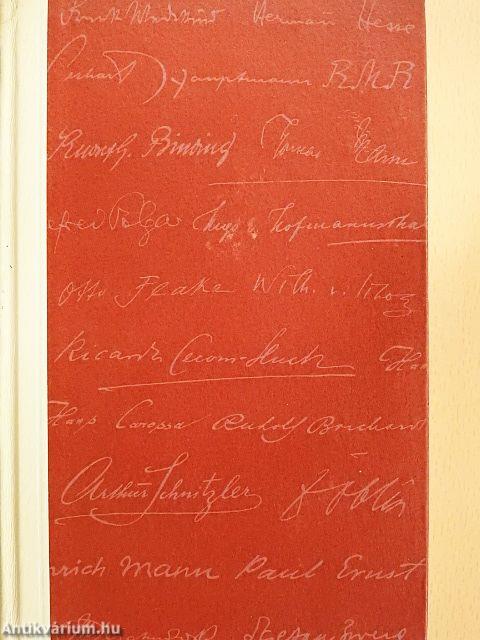 Frank Wedekind Hermann Hesse
Gerhart Hauptmann RMR
Rudolf G. Binding Thomas Mann
Alfred Polgar Hugo v. Hofmannsthal
Otto Flake Wilh. v. Scholz
Ricarda Ceconi-Huch
Hans Carossa Rudolf Borchardt
Arthur Schnitzler
nrich Mann Paul Ernst
Stefan Zweig
Antikvárium.hu